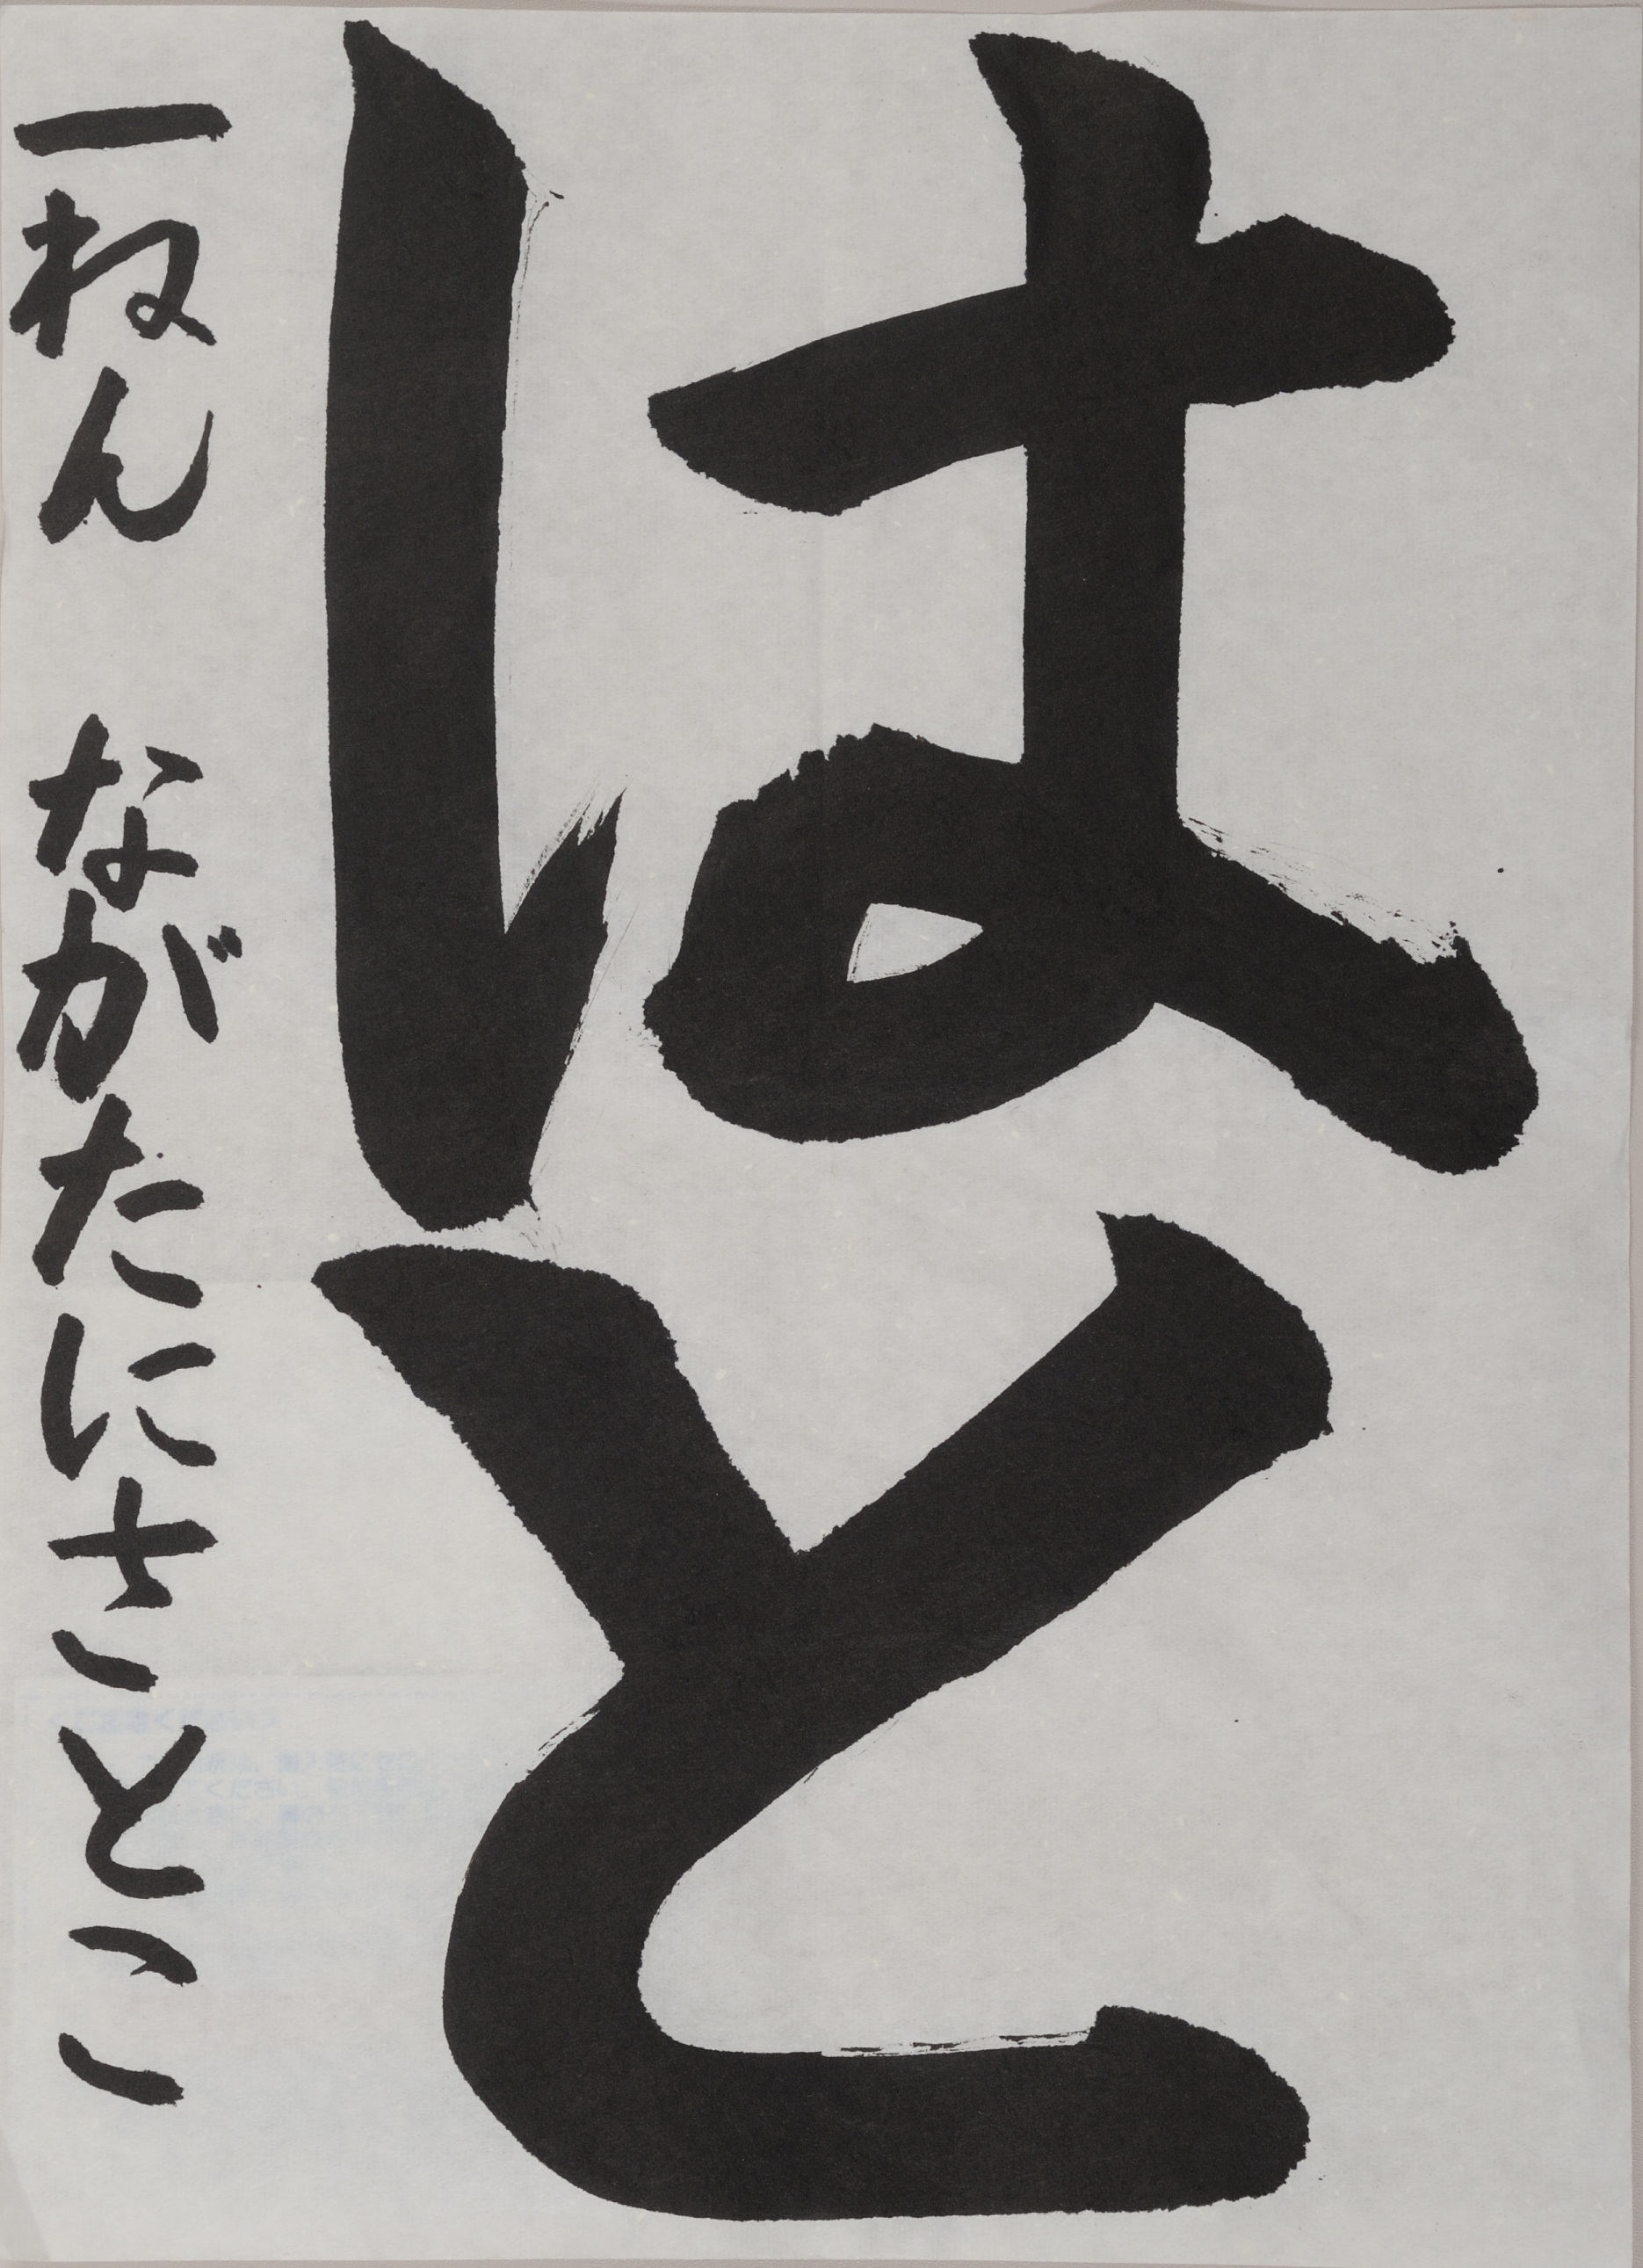 はと
一ねん ながたにさとこ